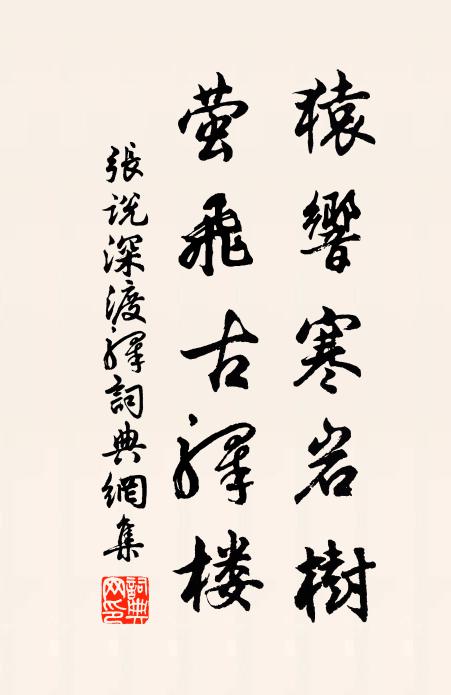 猿響寒岩樹
萤飛古驛楼
張説深渡驛詞典網集
詞典网印